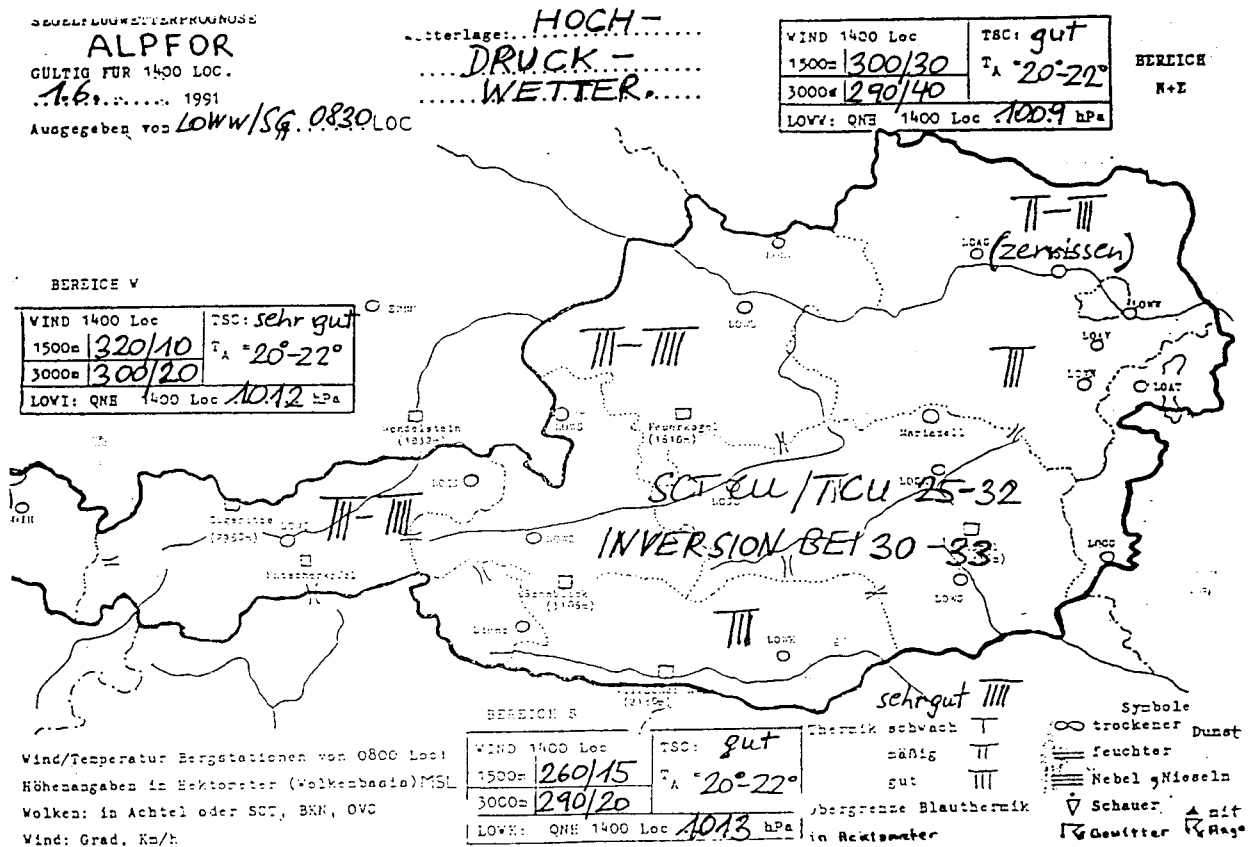 SEGELFLUGWETTERPROGNOSE
ALPFOR
GÜLTIG FÜR 1400 LOC.
1.6. 1991
Ausgegeben von LOWW/SG 0830 LOC
HOCH-
DRUCK-
WETTER.
WIND 1400 Loc TSC: gut
1500m 300/30 TA = 20°-22°
3000m 290/40
LOWW: QNH 1400 Loc 1009 hPa
BEREICH
N+E
BEREICH W
WIND 1400 Loc TSC: sehr gut
1500m 320/10 TA = 20°-22°
3000m 300/20
LOWI: QNH 1400 Loc 1012 hPa
LOAG (zerrissen)
LOWW
LOAV
LOAT
Wendelstein
Feuerkogel
Mariazell
SCT CU/TCU 25-32
INVERSION BEI 30-33
LOWG
LOWK
BEREICH S
WIND 1400 Loc TSC: gut
1500m 260/15 TA = 20°-22°
3000m 290/20
LOWK: QNH 1400 Loc 1013 hPa
Wind/Temperatur Bergstationen von 0800 Loc!
Höhenangaben in Hektometer (Wolkenbasis) MSL
Wolken: in Achtel oder SCT, BKN, OVC
Wind: Grad, Km/h
sehr gut
Thermik schwach
mäßig
gut
Obergrenze Blauthermik
in Hektometer
Symbole
trockener Dunst
feuchter
Nebel Nieseln
Schauer
Gewitter mit
Hagel